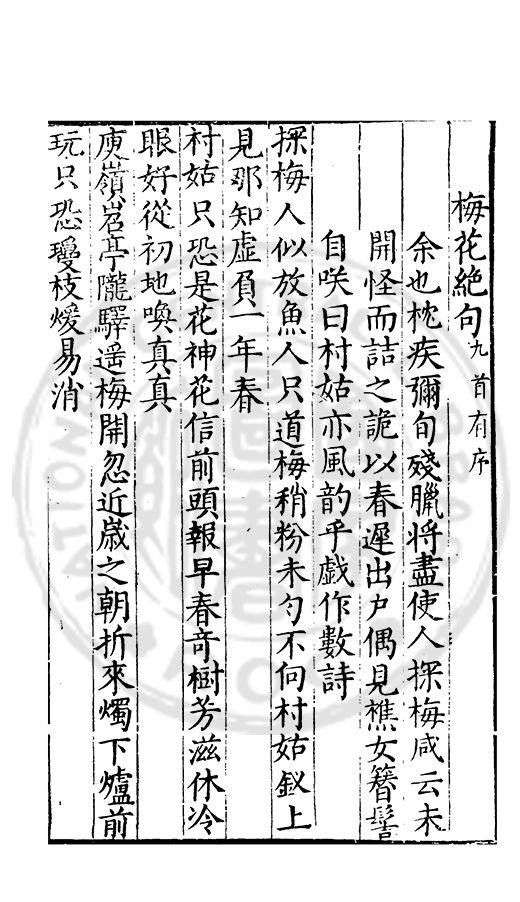 梅花絶句九首有序
余也枕疾彌旬殘臘将盡使人探梅咸云未
開怪而詰之詭以春遲出户偶見樵女簪髻
自咲曰村姑亦風韵乎戯作數詩
探梅人似放魚人只道梅稍粉未勻不向村姑釵上
見那知虛負一年春
村姑只恐是花神花信前頭報早春竒樹芳滋休冷
眼好從初地喚真真
庾嶺岧亭隴驛遥梅開忽近歲之朝折來燭下爐前
玩只恐瓊枝煖易消